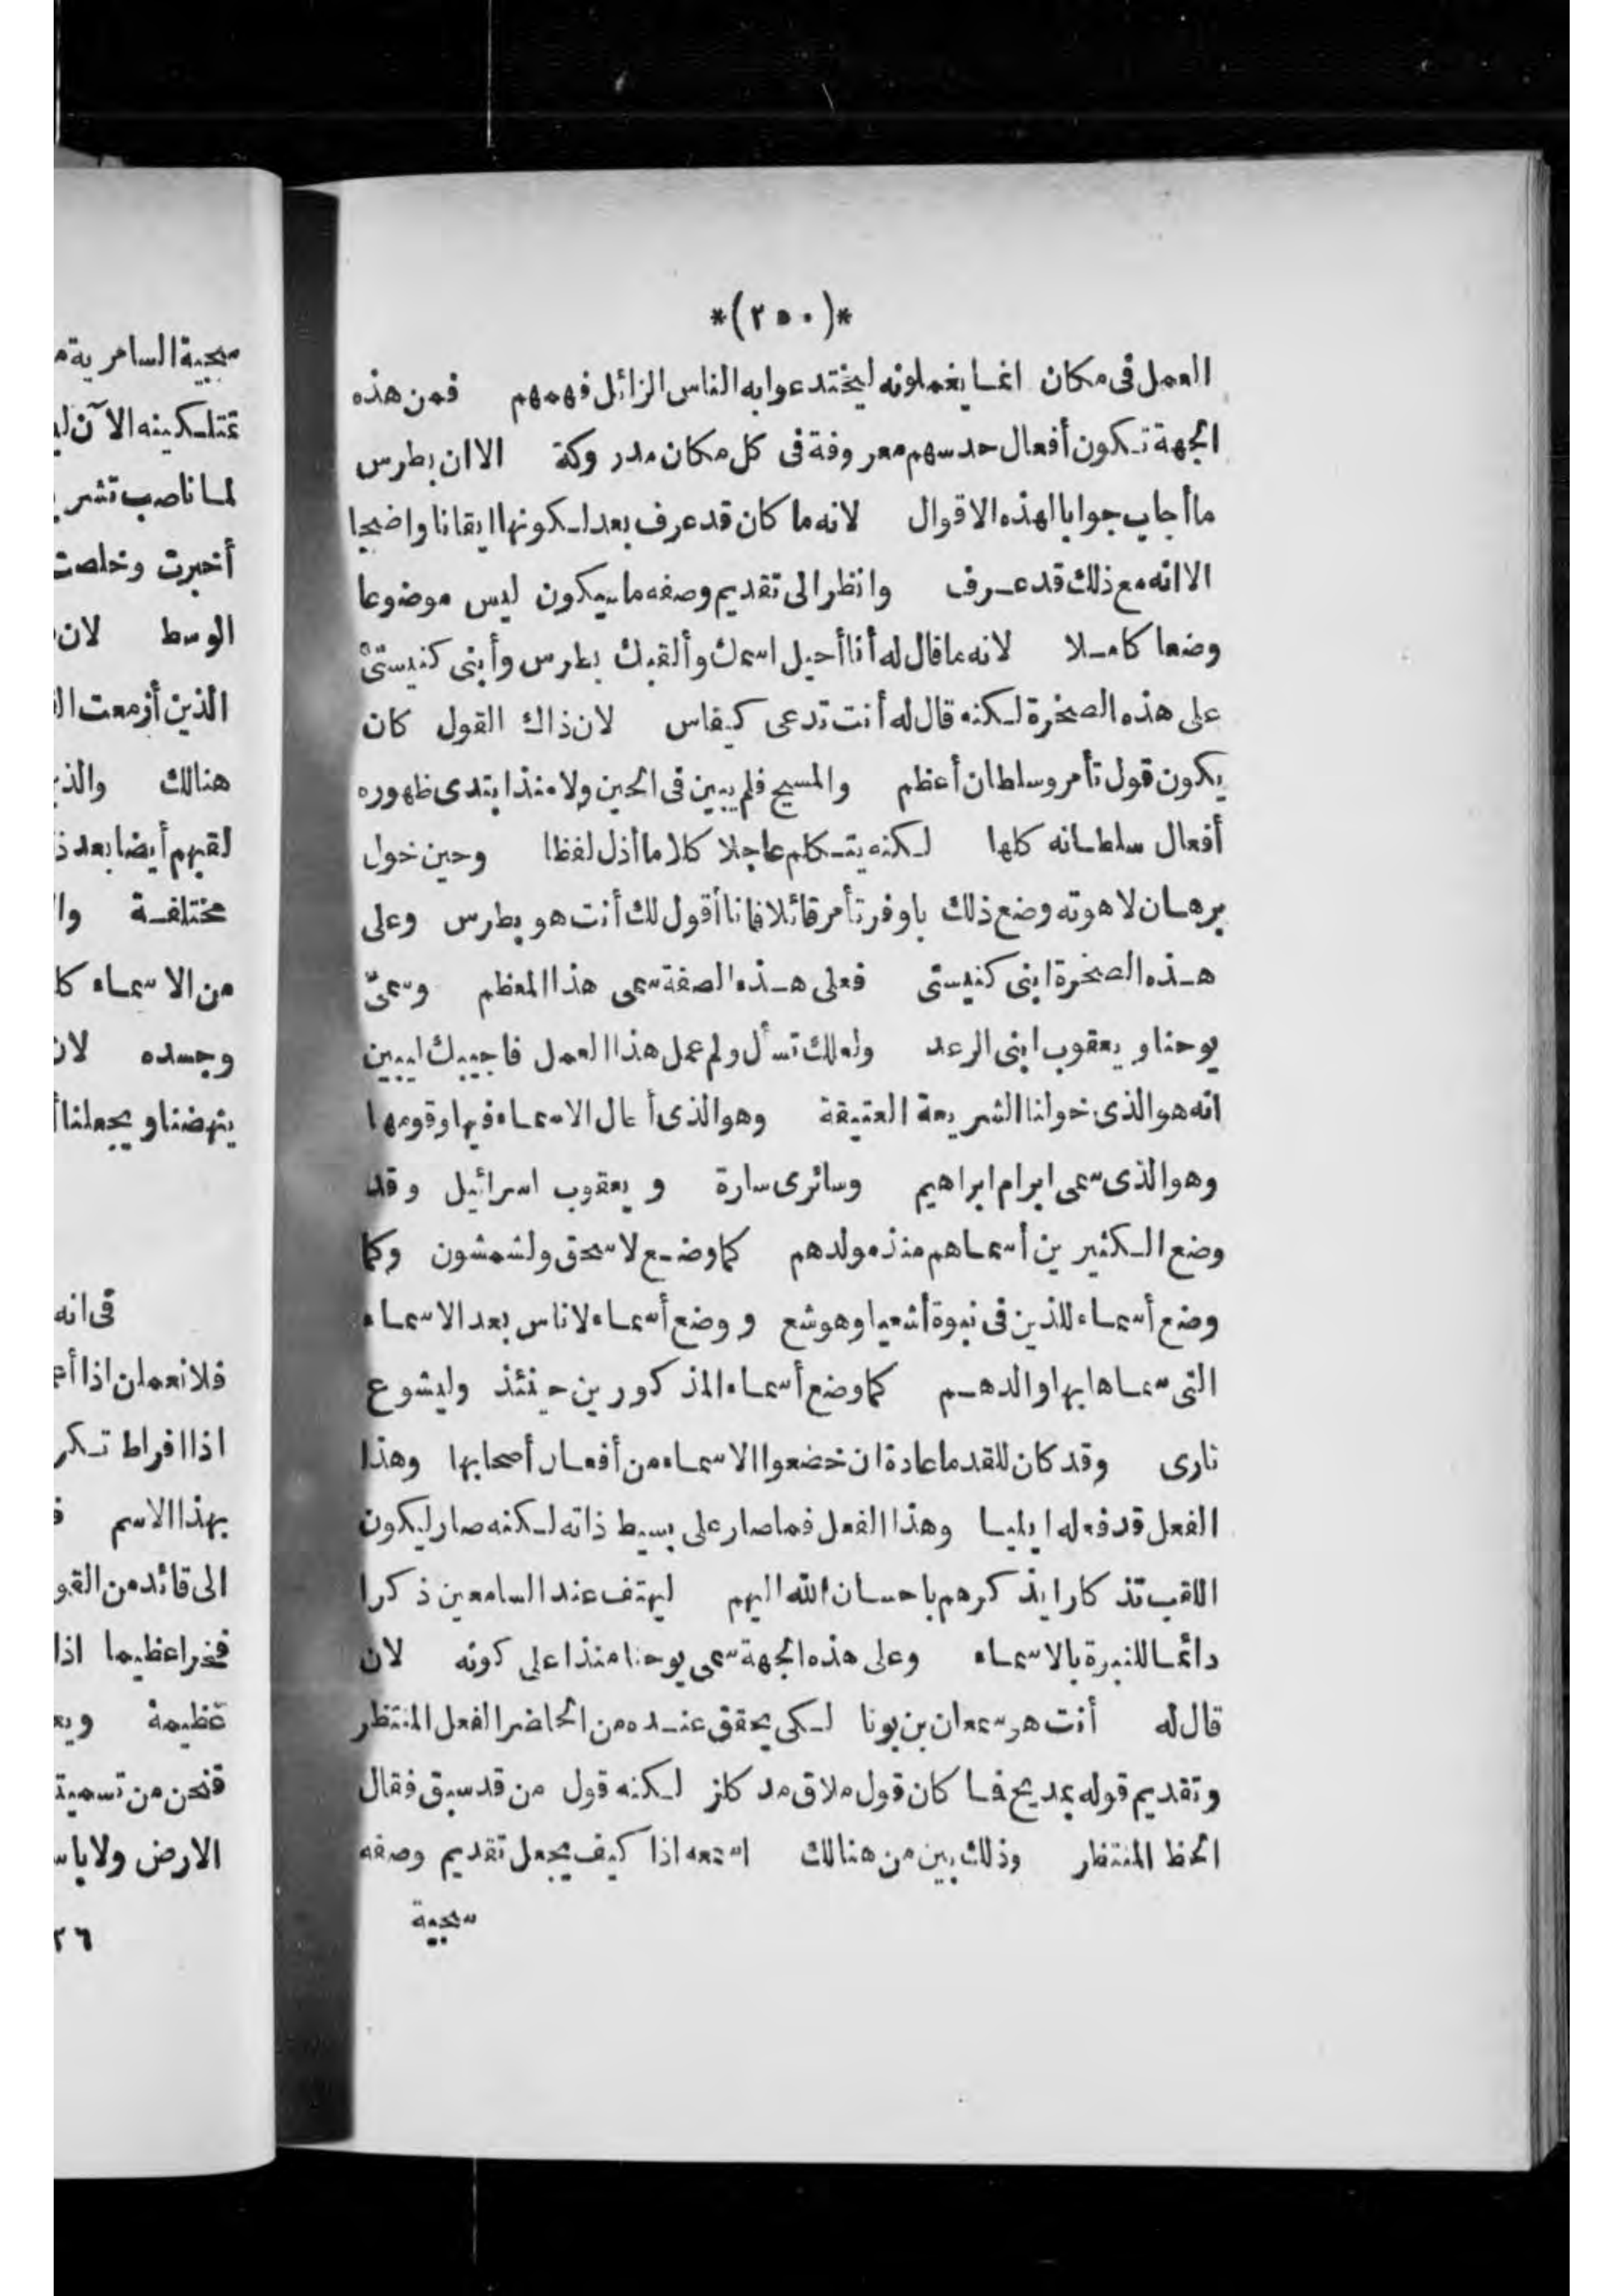 *(٢٥٠)*
العمل فى مكان انما يغملونه ليختدعوا به الناس الزائل فهمهم فمن هذه
الجهة تكون أفعال حدسهم معروفة فى كل مكان مدروكة الا ان بطرس
ما أجاب جوابا لهذه الاقوال لانه ما كان قد عرف بعد لكونها ايقانا واضحا
الا انه مع ذلك قد عرف وانظر الى تقديم وصفه ما سيكون ليس موضوعا
وضعا كاملا لانه ما قال له أنا أحيل اسمك وألقبك بطرس وأبنى كنيستى
على هذه الصخرة لكنه قال له أنت تدعى كيفاس لان ذاك القول كان
يكون قول تأمر وسلطان أعظم والمسيح فلم يبين فى الحين ولا منذ ابتدى ظهوره
أفعال سلطانه كلها لكنه يتكلم عاجلا كلاما أذل لفظا وحين خول
برهان لاهوته وضع ذلك باوفر تأمر قائلا فانا أقول لك أنت هو بطرس وعلى
هذه الصخرة ابنى كنيستى فعلى هذه الصفة سمى هذا المعظم وسمى
يوحنا ويعقوب ابنى الرعد ولعلك تسأل ولم عمل هذا العمل فاجيبك ليبين
انه هو الذى خولنا الشريعة العتيقة وهو الذى أحال الاسماء فيها وقومها
وهو الذى سمى ابرام ابراهيم وسائرى سارة ويعقوب اسرائيل وقد
وضع الكثيرين أسماهم منذ مولدهم كما وضع لاسحق ولشمشون وكما
وضع أسماء للذين فى نبوة أشعيا وهوشع ووضع أسماء لاناس بعد الاسماء
التى سماها بها والدهم كما وضع أسماء المذكورين حينئذ وليشوع
نارى وقد كان للقدما عادة ان خضعوا الاسماء من أفعال أصحابها وهذا
الفعل قد فعله ايليا وهذا الفعل فما صار على بسيط ذاته لكنه صار ليكون
اللقب تذكارا يذكرهم باحسان الله اليهم ليهتف عند السامعين ذكرا
دائما للنبرة بالاسماء وعلى هذه الجهة سمى يوحنا منذ اعلى كونه لان
قال له أنت هو سمعان بن يونا لكى يحقق عنده من الحاضر الفعل المنتظر
وتقديم قوله بمديح فما كان قول ملاق مد كلز لكنه قول من قد سبق فقال
الحظ المنتظر وذلك بين من هنالك استمعه اذا كيف يجعل تقديم وصفه
سجية
سجية السامرية
تمتلكينه الآن
لما ناصب
أخبرت وخلصت
الوسط لان
الذين أزمعت
هنالك
لقيهم أيضا بعد
مختلفة
من الاسماء
وجسده
ينهضنا ويجعلنا
فى انه
فلا نعملن اذا
اذا افراط
بهذا الاسم
الى قائد من
فخرا عظيما اذا
عظيمة
فنحن من
الارض ولا
٢٦